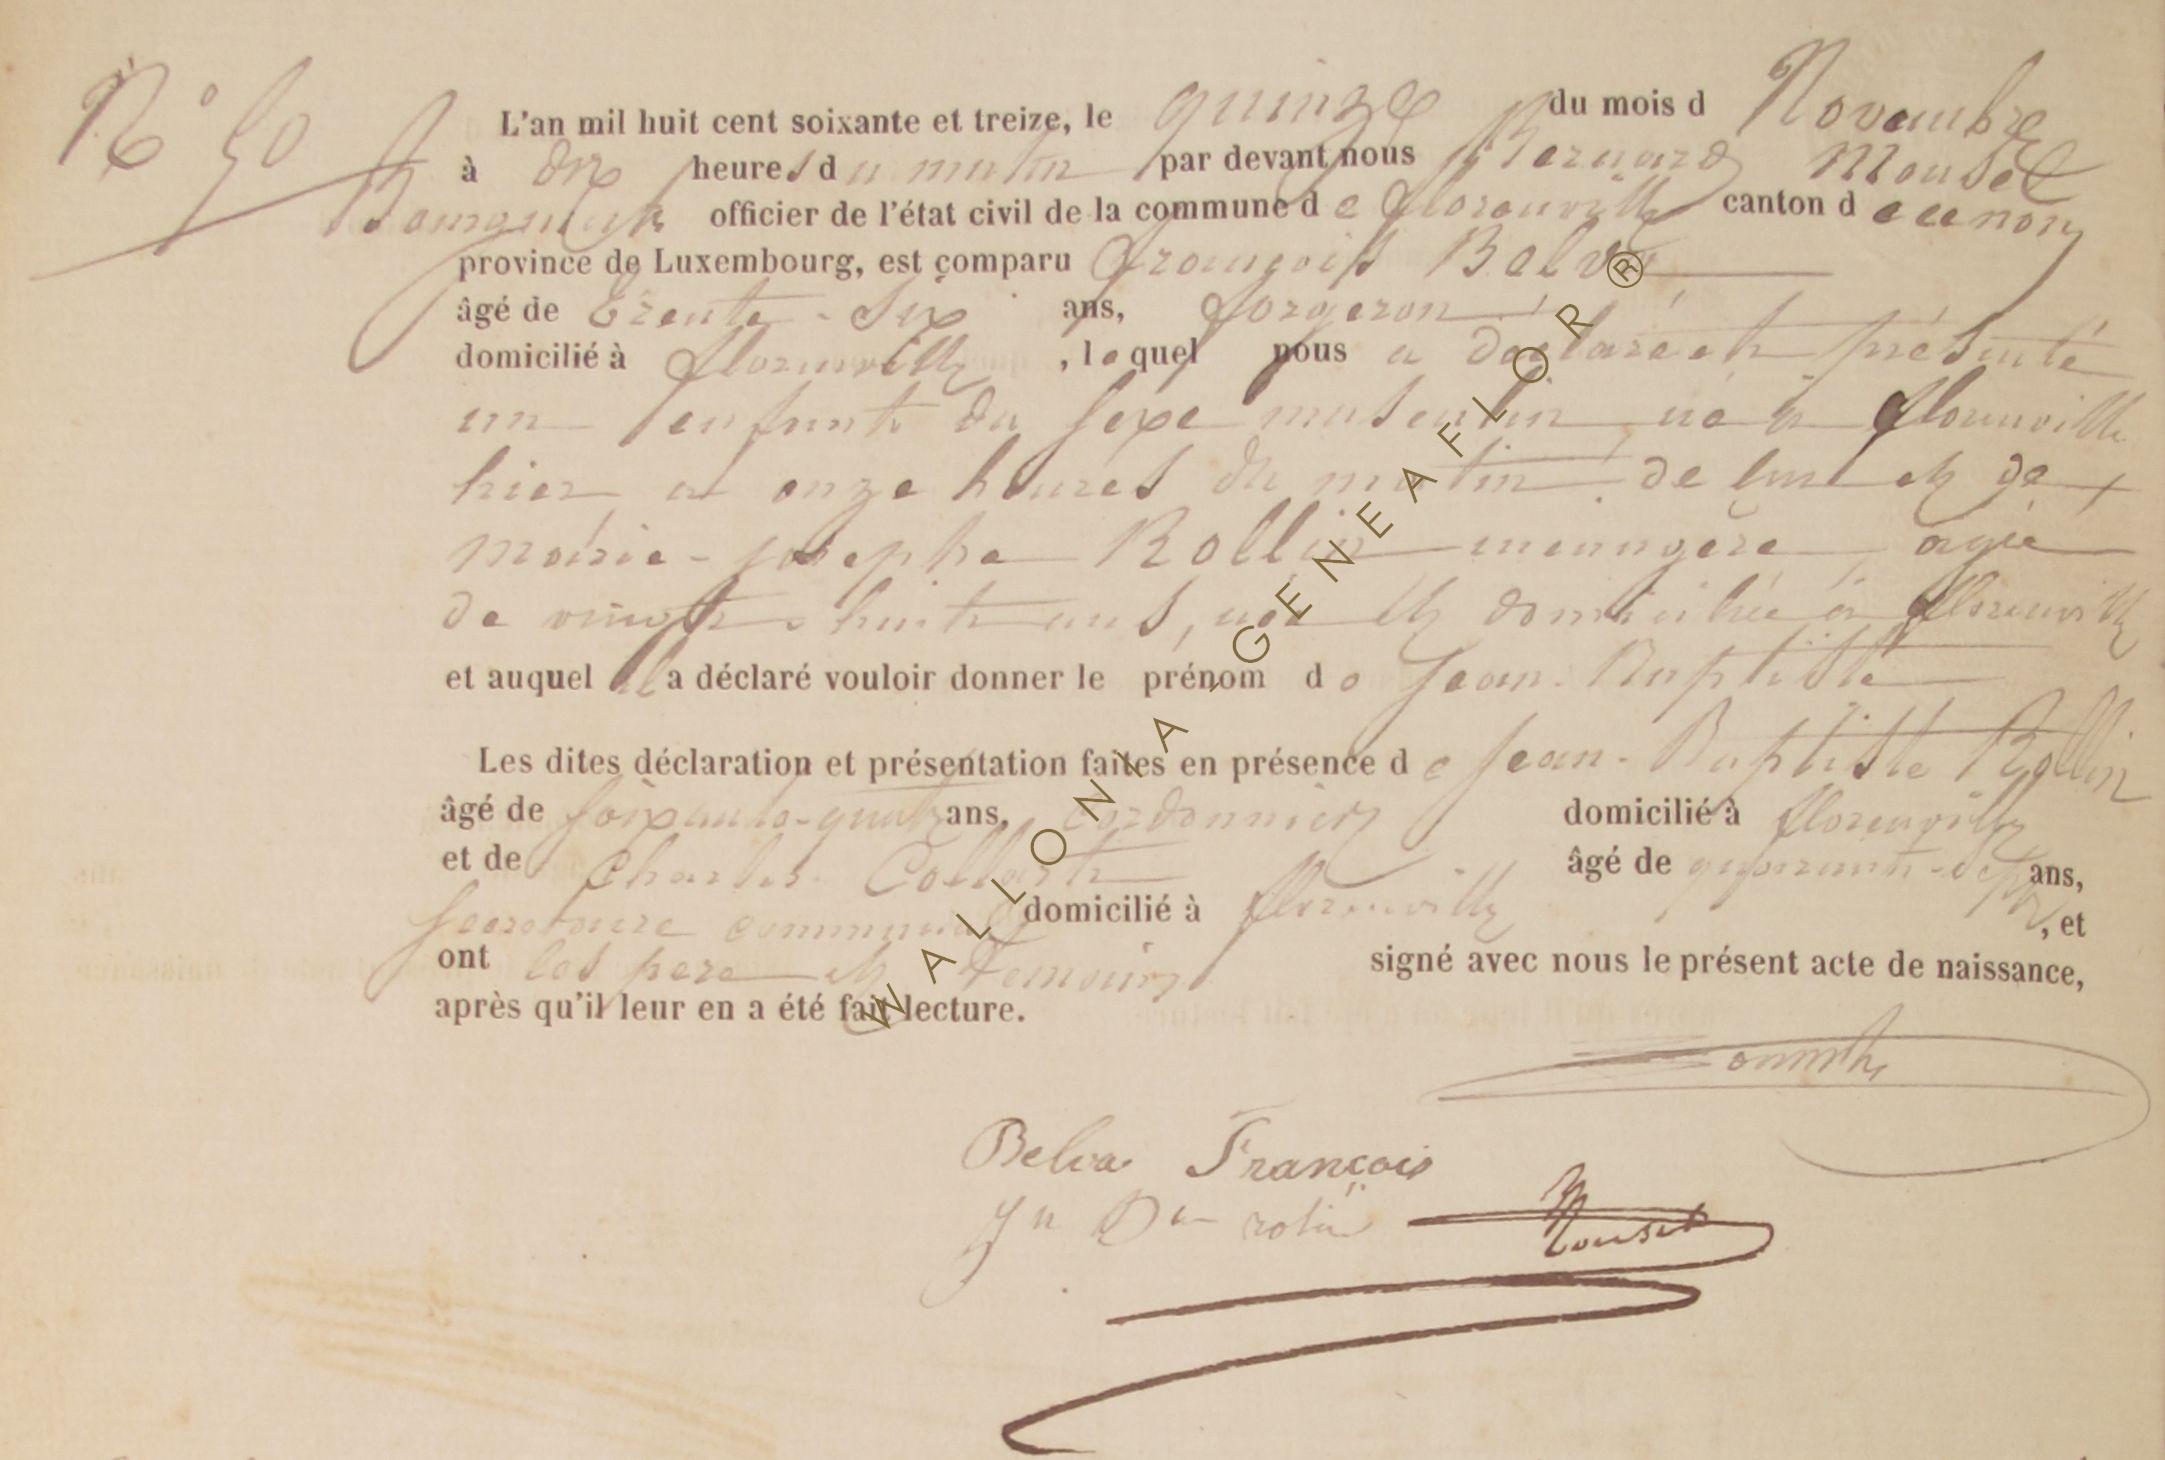 N° 50
L'an mil huit cent soixante et treize, le quinze du mois d Novembre
à dix heures du matin par devant nous Bernard Mousel
Bourgmestre officier de l'état civil de la commune de florenville canton de
province de Luxembourg, est comparu François Belva
âgé de trente-six ans, forgeron
domicilié à florenville, lequel nous a déclaré et présenté
un enfant du sexe masculin né à florenville
hier à onze heures du matin de lui et de
marie-josephe Rollin ménagère agée
de vingt-huit ans, née et domiciliée à florenville
et auquel il a déclaré vouloir donner le prénom de Jean-Baptiste
Les dites déclaration et présentation faites en présence de Jean-Baptiste Rollin
âgé de soixante-quatre ans, cordonnier domicilié à florenville
et de Charles Collart âgé de quarante-sept ans,
secretaire communal domicilié à florenville, et
ont les pere et temoins signé avec nous le présent acte de naissance,
après qu'il leur en a été fait lecture.
Belva François
Jn Bte rolin
Mousel
WALLONIA GENEAFLOR ®